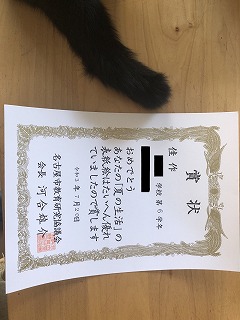 賞状
佳作
学校第6学年
おめでとう
あなたの「夏の生活」の
表紙絵はたいへん優れ
ていましたので賞します
令和3年 月20日
名古屋市教育研究協議会
会長 河合